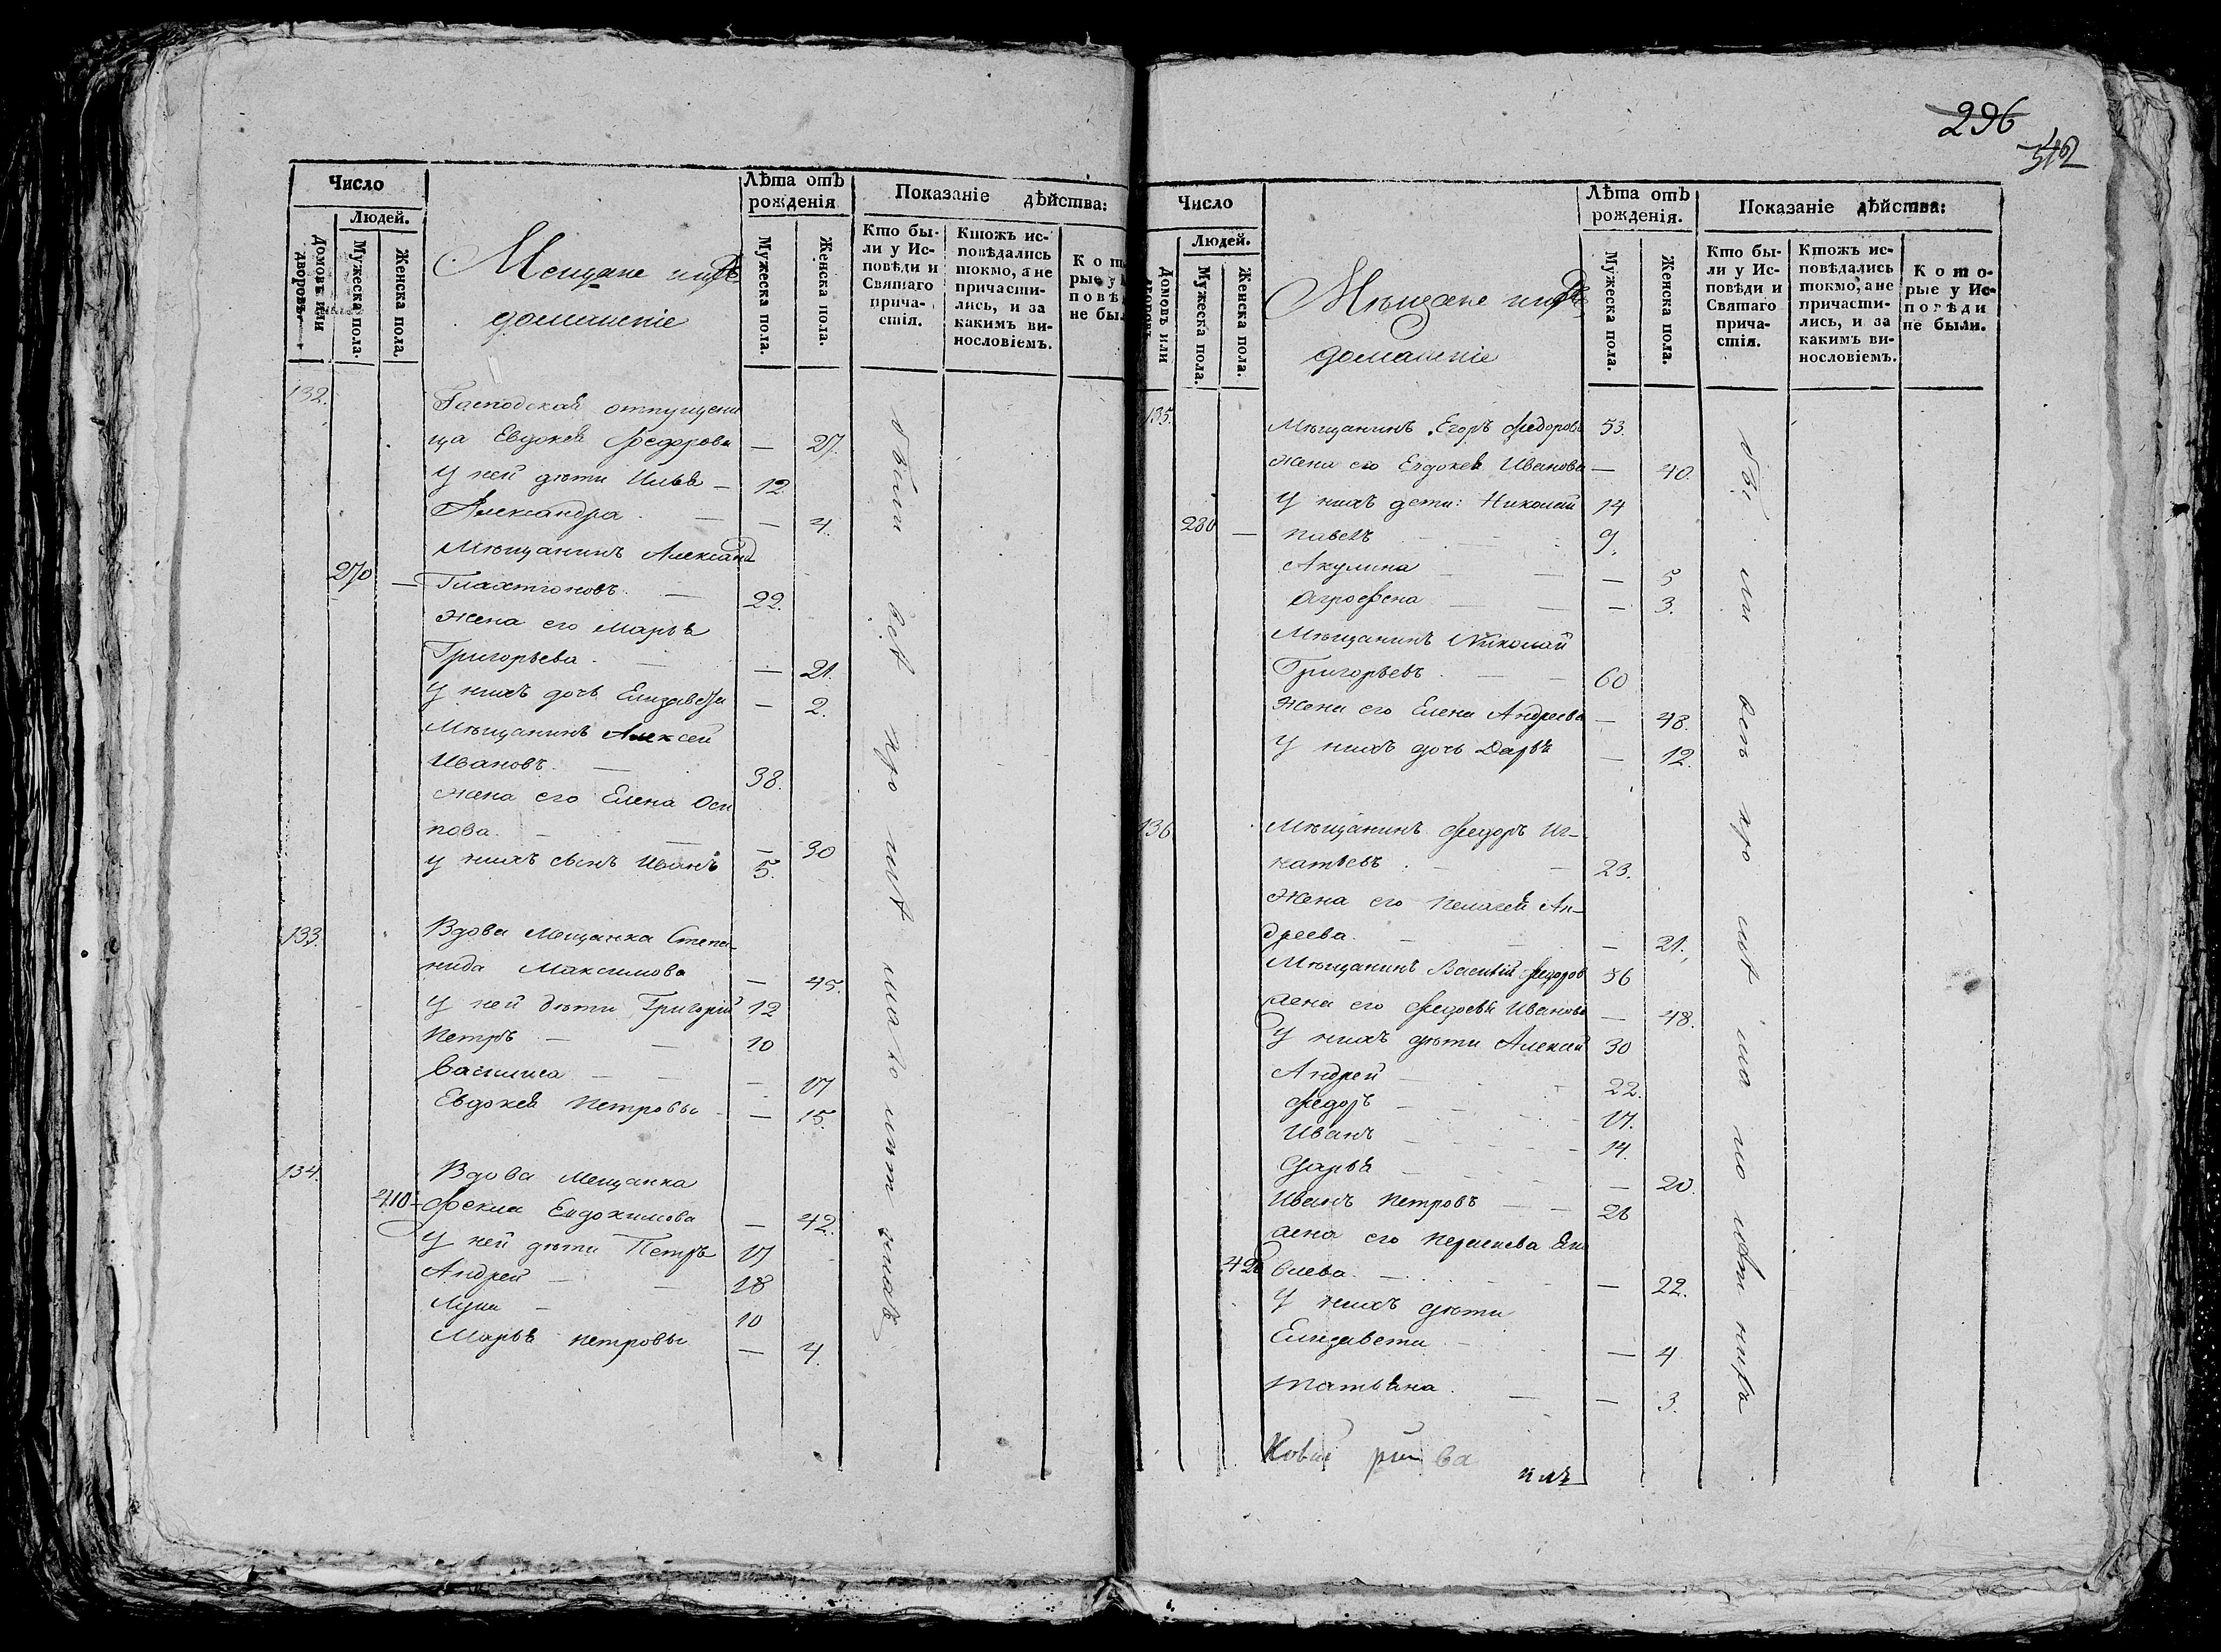 296
Число
Людей.
Домовъ или дворовъ.
Мужеска пола.
Женска пола.
Мещане и ихъ
домашніе
Лѣта отъ рожденія
Мужеска пола.
Женска пола.
Показаніе дѣйства:
Кто были у Исповѣди и Святаго причастія.
Ктожъ исповѣдались токмо, а не причастились, и за какимъ винословіемъ.
132. Господская отпущени
ца Евдокея Федорова — 27.
У ней дѣти Илья — 12.
Александра — — 4.
Мѣщанинъ Александ
270 — 22.
Жена его Марья
Григорьева — — 21.
У нихъ дочь Елизавета — 2.
Мѣщанинъ Алексей
Ивановъ. — 38.
Жена его Елена Оси
пова. — — 30
У нихъ сынъ Иванъ 5.
133. Вдова Мещанка Степа-
нида Максимова — 45.
У ней дѣти Григорій 12
Петръ — — 10
Василиса — — — 17
Евдокея Петровы — — 15.
134. Вдова Мещанка
410 — Фекла Евдокимова — 42.
У ней дѣти Петръ 17
Андрей — — 18
Лука — 10
Марья Петровы — 4.
Число
Людей.
Домовъ или дворовъ
Мужеска пола.
Женска пола.
Мѣщане и ихъ
домашніе
Лѣта отъ рожденія.
Мужеска пола.
Женска пола.
Показаніе дѣйства:
Кто были у Исповѣди и Святаго причастія.
Ктожъ исповѣдались токмо, а не причастились, и за какимъ винословіемъ.
Которые у Исповѣди не были.
135. Мѣщанинъ Егоръ Федоровъ 53.
Жена его Евдокея Иванова — 40.
У нихъ дети: Николай 14
280 — Павелъ 9.
Акулина — — — 5
Агрофена — — — 3.
Мѣщанинъ Николай
Григорьевъ — — 60
Жена его Елена Андреева — 48.
У нихъ дочь Дарья — 12.
136 Мѣщанинъ Федоръ Иг-
натьевъ — 23.
Жена его Пелагея Ан-
дреева. — — — 21.
Мѣщанинъ Василій Федоров 56
Жена его Федосья Иванова — 48.
У нихъ дѣти Алексей 30
Андрей — 22.
Федоръ — 17.
Иванъ — 14.
Дарья — — 20.
Иванъ Петровъ — — 26
Жена его
420 — 22.
У нихъ дѣти
Елизавета — — 4
Татьяна. — — 3.